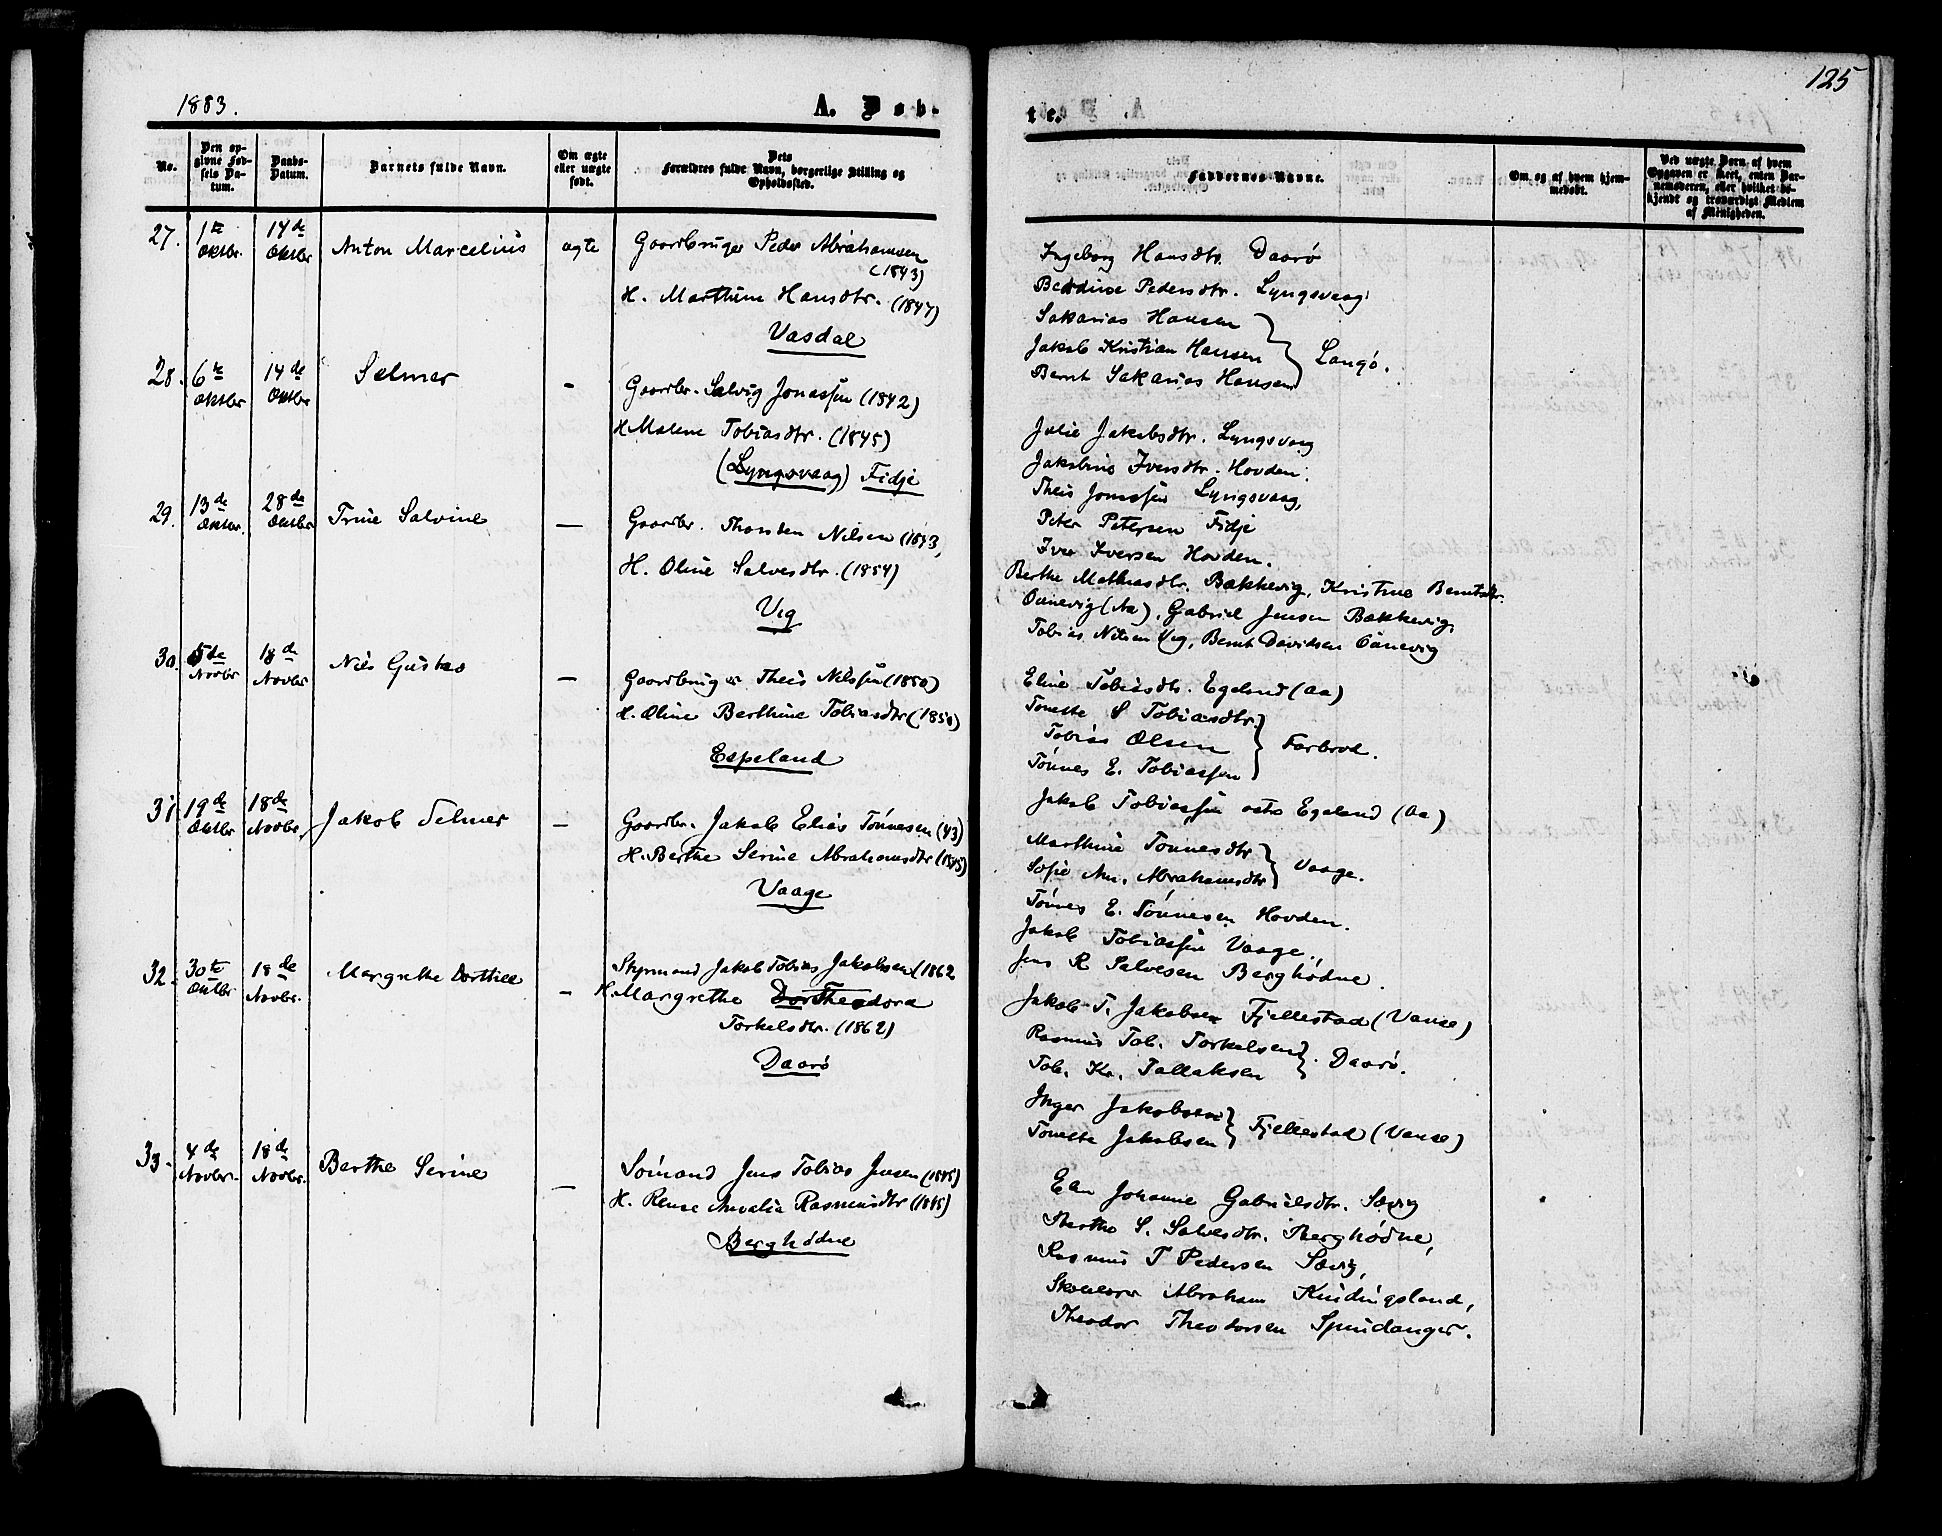 1883.
A. Døb-
te.
125
No.
Den op-
givne Fød-
sels Da-
tum.
Daabs-
Datum.
Barnets fulde Navn.
Om ægte
eller uægte
født.
Dets
Forældres fulde Navn, borgerlige Stilling og
Opholdssted.
Faddernes Navne.
Om og af hvem hjem-
medøbt.
Ved uægte Børn, af hvem
Opgaven er skeet, enten Bar-
nemoderen, eller hvilket be-
kjendt og troværdigt Medlem
af Menigheden.
27. 1te Oktbr. 14de Oktbr Anton Marcelius ægte
Gaardbruger Peder Abrahamsen
(1843)
H. Marthine Hansdtr. (1847)
Vasdal
Ingeborg Hansdtr. Daarø
Berdine Pedersdtr. Lyngsvaag
Sakarias Hansen
Jakob Kristian Hansen } Langø.
Bernt Sakarias Hansen
28. 6te Oktbr 14de Oktbr Selmer -
Gaardbr. Salvig Jonassen (1842)
H Malene Tobiasdtr. (1845)
(Lyngsvaag) Fidje
Julie Jakobsdtr. Lyngsvaag
Jakobine Iversdtr. Hovden.
Theis Jonassen Lyngsvaag,
Peter Petersen Fidje
Iver Iversen Hovden.
29. 13de Oktbr. 28de Oktbr Trine Salvine —
Gaardbr. Thorsten Nilsen (1843,
H. Oline Salvesdtr. (1854)
Vig
Berthe Mathiasdtr. Bækkevig, Kristine Berntsdtr.
Oanevig (Aa), Gabriel Jensen Bækkevig,
Tobias Nilsen Vig, Bernt Davidsen Oanevig
30. 5de Novbr 18de Novbr Nils Gustav —
Gaardbruger Theis Nilssen (1850)
H. Oline Berthine Tobiasdtr (1850)
Espeland
Eline Tobiasdtr. Egeland (Aa)
Tomette S Tobiasdtr.
Tobias Olsen } Farbrod.
Tønnes E. Tobiassen
Jakob Tobiassen Egeland (Aa)
31 19de Oktbr 18de Novbr. Jakob Selmer —
Gaardbr. Jakob Elias Tønnesen (43)
H. Berthe Serine Abrahamsdtr (1845)
Vaage
Marthine Tønnesdtr
Sofie An. Abrahamsdtr } Vaage.
Tønnes E. Tønnesen Hovden.
Jakob Tobiassen Vaage.
Jens R Salvesen Berghødne.
32. 30te Oktbr 18de Novbr. Margrethe Dorthea —
Styrmand Jakob Tobias Jakobsen (1862
H. Margrethe Dor Theodora
Torkelsdtr. (1862)
Daarø
Jakob T. Jakobsen Fjellestad (Vanse)
Rasmus Tob. Torkelsen
Tob. Kr. Tallaksen } Daarø.
Inger Jakobsen
Tomette Jakobsen } Fjellestad (Vanse)
33. 4de Novbr. 18de Novbr. Berthe Serine —
Sømand Jens Tobias Jensen (1845)
H. Rense Amalia Rasmusdtr (1845)
Berghødne
Elen Johanne Gabrielsdtr. Sævig
Berthe S. Salvesdtr. Berghødne,
Rasmus T Pedersen Sævig,
Abraham Kindingsland,
Theodor Theodorsen Spindanger.